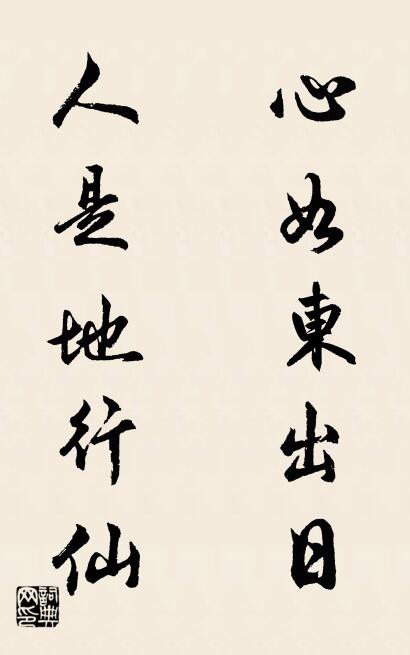 心如東出日
人是地行仙
詞典
网印